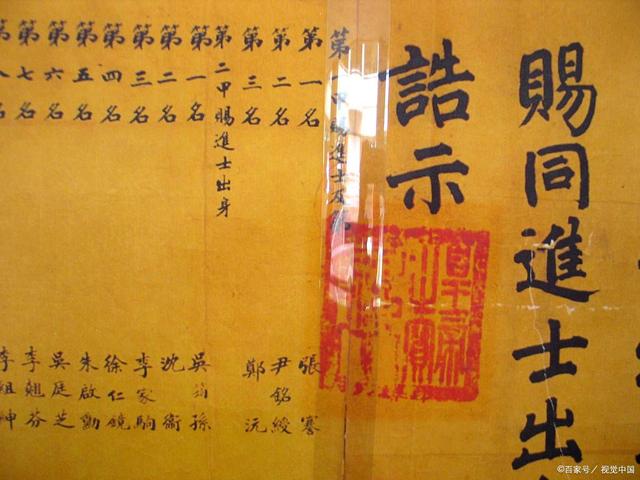 賜同進士出
誥示
皇帝之寶
第一甲賜進士及第
第一名 張謇
第二名 尹銘綬
第三名 鄭沅
第二甲賜進士出身
第一名 吳筠孫
第二名 沈衛
第三名 李家駒
第四名 徐仁鏡
第五名 朱啟勳
第六名 吳庭芝
第七名 李翹芬
第八名 李組紳
©百家号/ 视觉中国